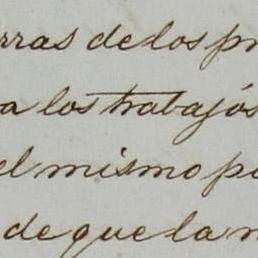 rras de los pr
a los trabajós
el mismo pa
de que la n